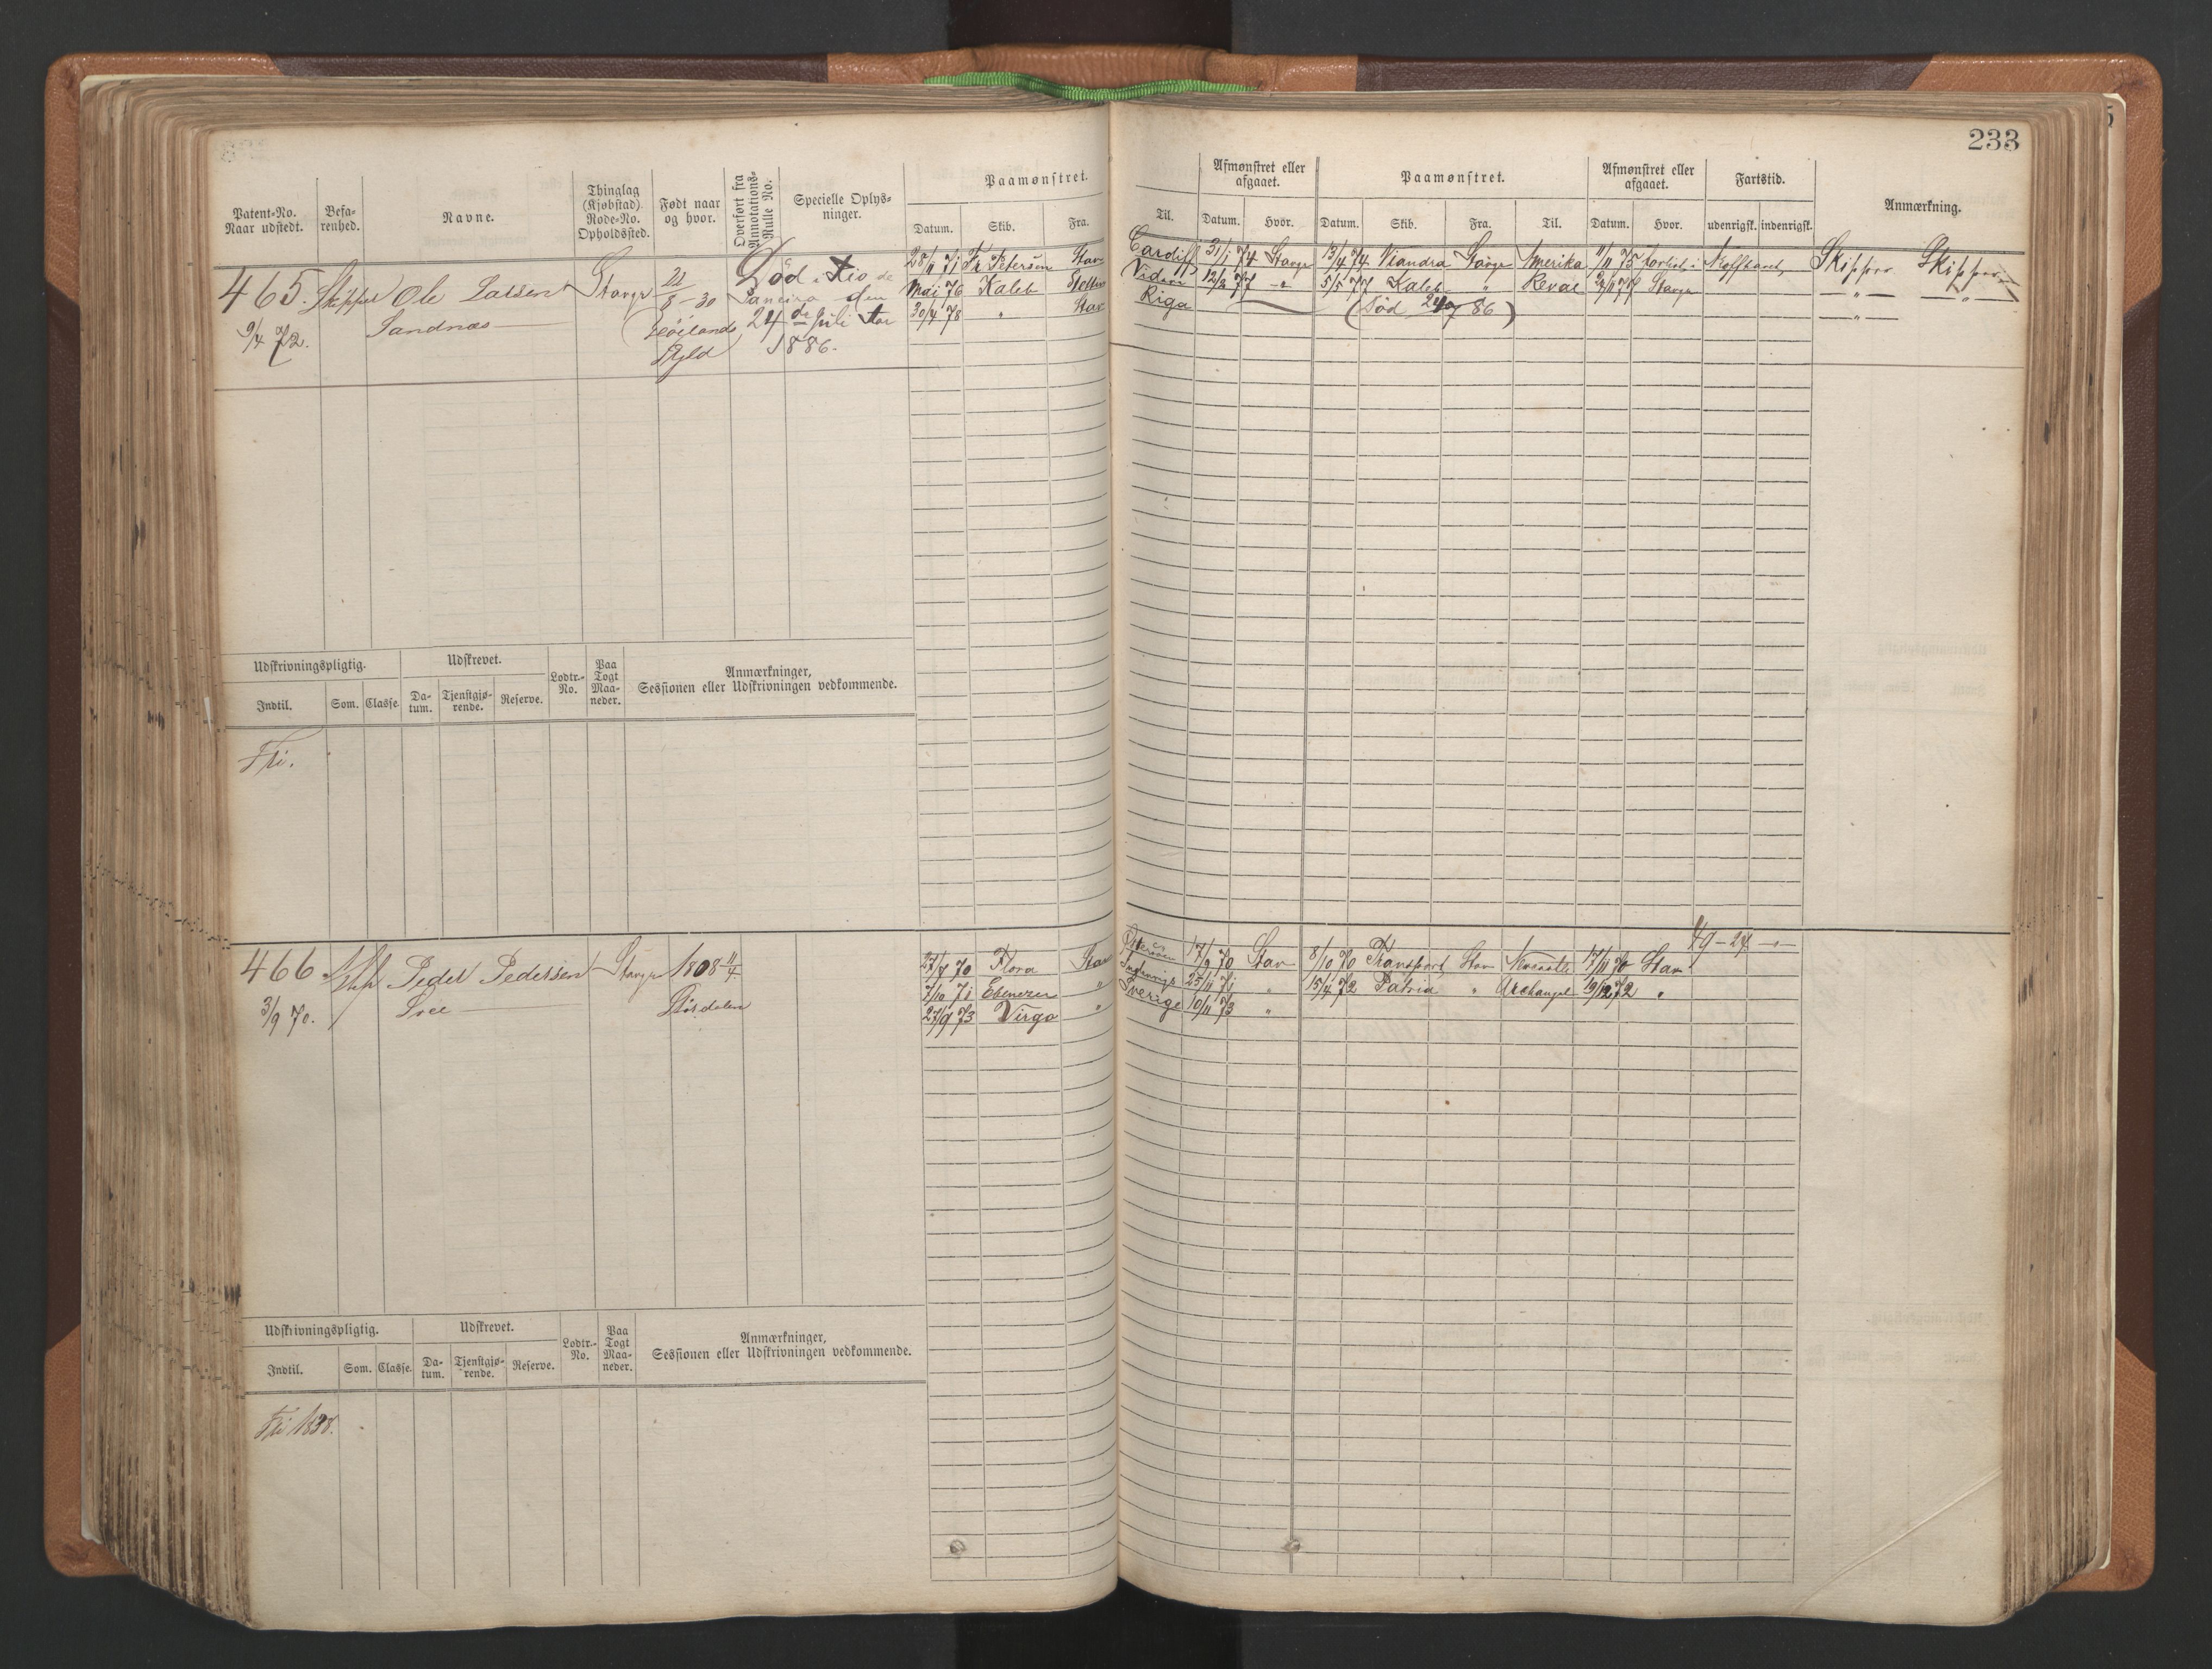 233
Patent-No. Naar udstedt.
Befa-renhed.
Navne.
Thinglag (Kjøbstad). Rode-No. Opholdssted.
Født naar og hvor.
Overført fra Annotations-Rulle No.
Specielle Oplys-ninger.
Paamønstret.
Datum. Skib. Fra. Til.
Afmønstret eller afgaaet.
Datum. Hvor.
Paamønstret.
Datum. Skib. Fra. Til.
Afmønstret eller afgaaet.
Datum. Hvor.
Fartstid.
udenrigsk. indenrigsk.
Anmærkning.
465. Skipper Ole Larsen Stavgr 22/8-30 Död i Rio de
9/4 72. Sandnæs Höilands Janeiro den
Pgld 24de Juli
1886.
28/11 71 Fr Petersen Stav Cardiff 31/1 74 Stavgr 13/4 74 Stavgr Amerika 9/11 75 Skipper Skipper
Mai 76 Kaleb 12/2 77 -"- 5/5 77 Kaleb " Reval Stavgr -"- -"-
30/4 78 " Stav Riga (död 24/7 86) -"-
Udskrivningspligtig. Udskrevet. Lodtr.-No. Paa Togt Maa-neder. Anmærkninger, Sessionen eller Udskrivningen vedkommende.
Indtil. Som. Classe. Da-tum. Tjenstgjø-rende. Reserve.
Fri.
49-24
466 Peder Pedersen Stavgr 1808 11/4
3/9 70. Stördalen
27/8 70 Flora Stav 17/9 70 Stav 8/10 70 Transport Stav Newcastle 17/11 70 Stav
7/10 71 Ebenezer " Indenrigs 25/11 71 " 15/4 72 Patria " Archangel 19/12 72 "
27/9 73 Virgo " Sverige 10/11 73 "
Udskrivningspligtig. Udskrevet. Lodtr.-No. Paa Togt Maa-neder. Anmærkninger, Sessionen eller Udskrivningen vedkommende.
Indtil. Som. Classe. Da-tum. Tjenstgjø-rende. Reserve.
Fri 1838.